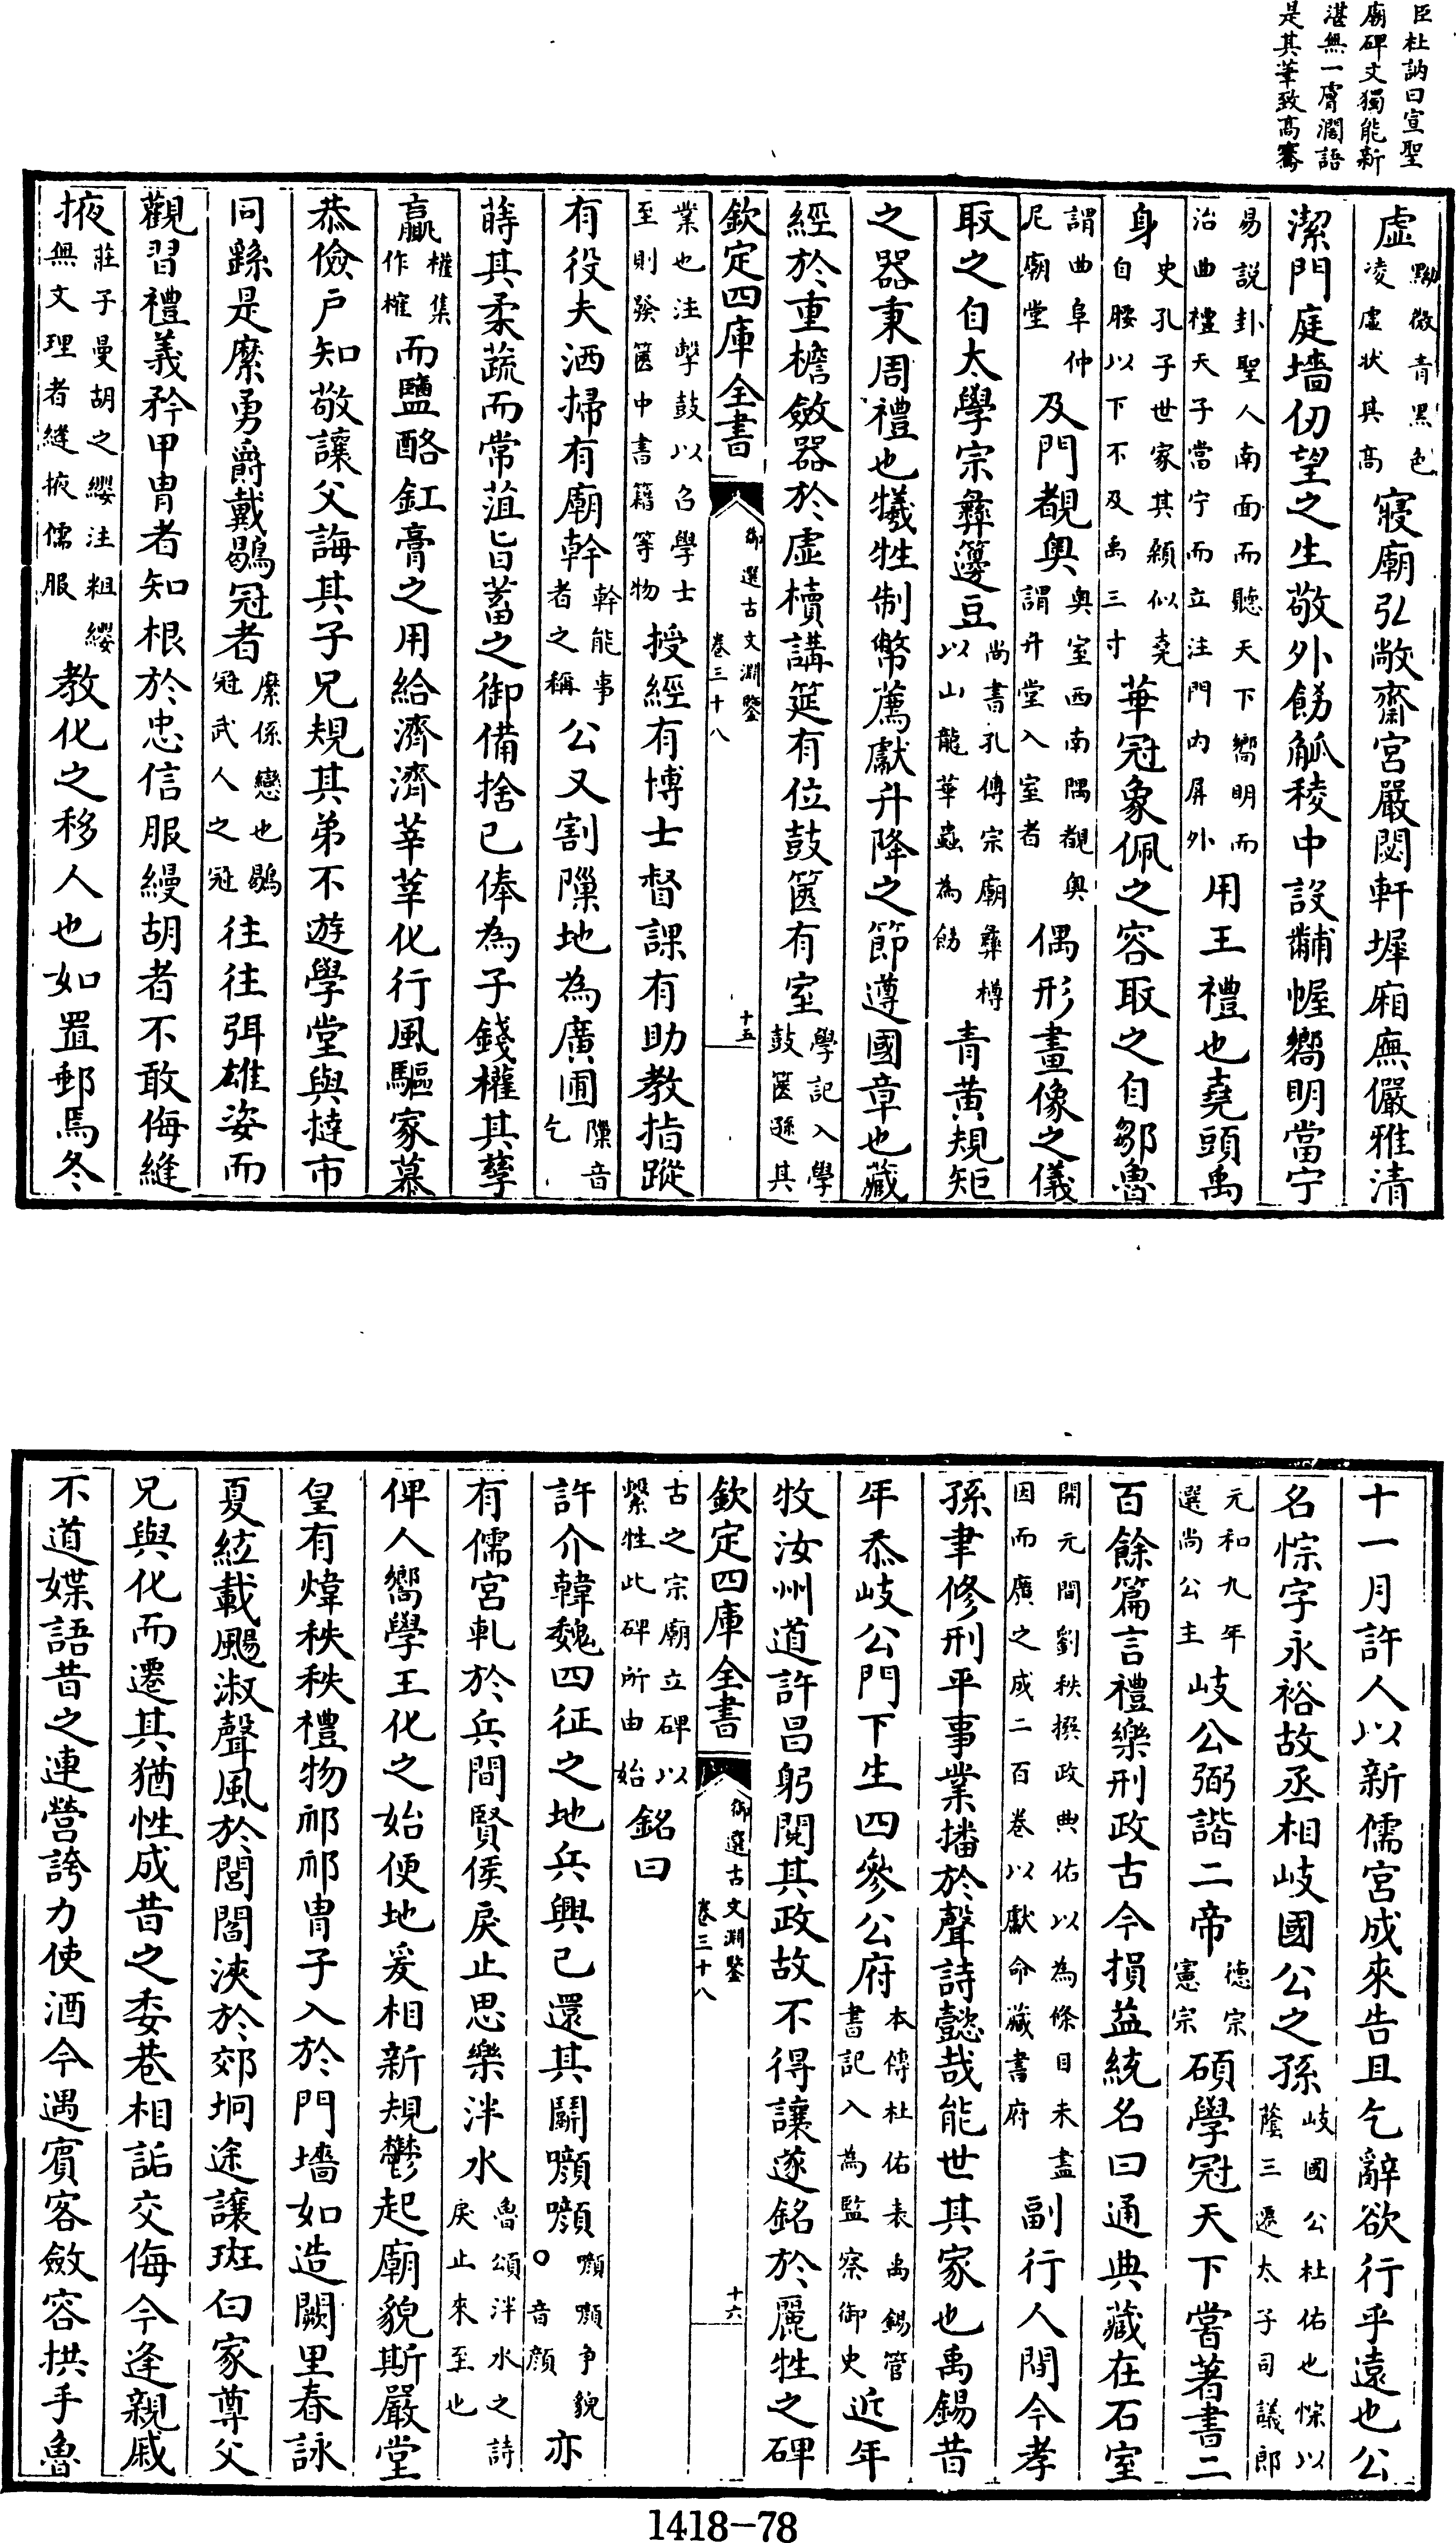 臣杜訥曰宣聖
廟碑文獨能新
湛無一膚濶語
是其筆致高騫
虛黝微青黑色凌虛状其高寢廟弘敞齋宮嚴閟軒墀廂廡儼雅清
潔門庭墻仞望之生敬外餝觚稜中設黼幄嚮明當宁
易説卦聖人南面而聽天下嚮明而治曲禮天子當宁而立注門内屏外用王禮也堯頭禹
身史孔子世家其顙似堯自腰以下不及禹三寸華冠象佩之容取之自鄒魯
謂曲阜仲尼廟堂及門覩奥奥室西南隅覩奥謂升堂入室者偶形畫像之儀
取之自太學宗彝籩豆尚書孔傳宗廟彝樽以山龍華蟲為餝青黄規矩
之器秉周禮也犧牲制幣薦獻升降之節遵國章也藏
經於重檐斂器於虛櫝講筵有位鼓篋有室學記入學鼓篋遜其
欽定四庫全書 御選古文淵鑒 卷三十八 十五
業也注擊鼓以召學士至則發篋中書籍等物授經有博士督課有助教指蹤
有役夫洒掃有廟幹幹能事者之稱公又割隟地為廣圃隟音乞
蒔其柔蔬而常菹旨蓄之御備捨已俸為子錢權其孳
贏權集作榷而鹽酪釭膏之用給濟濟莘莘化行風驅家慕
恭儉户知敬讓父誨其子兄規其弟不遊學堂與撻市
同繇是縻勇爵戴鶡冠者縻係戀也鶡冠武人之冠往往弭雄姿而
觀習禮義矜甲胄者知根於忠信服縵胡者不敢侮縫
掖莊子曼胡之纓注粗纓無文理者縫掖儒服教化之移人也如置郵焉冬
十一月許人以新儒宮成來告且乞辭欲行乎遠也公
名悰字永裕故丞相岐國公之孫岐國公杜佑也悰以蔭三遷太子司議郎
元和九年選尚公主岐公弼諧二帝德宗憲宗碩學冠天下嘗著書二
百餘篇言禮樂刑政古今損益統名曰通典藏在石室
開元間劉秩撰政典佑以為條目未盡因而廣之成二百卷以獻命藏書府副行人間今孝
孫聿修刑平事業播於聲詩懿哉能世其家也禹錫昔
年忝岐公門下生四參公府本傳杜佑表禹錫管書記入為監察御史近年
牧汝州道許昌躬閱其政故不得讓遂銘於麗牲之碑
欽定四庫全書 御選古文淵鑒 卷三十八 十六
古之宗廟立碑以繫牲此碑所由始銘曰
許介韓魏四征之地兵興已還其鬭嚬嚬嚬嚬争貌○音顔亦
有儒宮軋於兵間賢侯戾止思樂泮水魯頌泮水之詩戾止來至也
俾人嚮學王化之始便地爰相新規鬱起廟貌斯嚴堂
皇有煒秩秩禮物祁祁胄子入於門墻如造闕里春詠
夏絃載颺淑聲風於閭閻浹於郊坰途讓斑白家尊父
兄與化而遷其猶性成昔之委巷相詬交侮今逢親戚
不道媟語昔之連營誇力使酒今遇賓客斂容拱手魯
1418-78